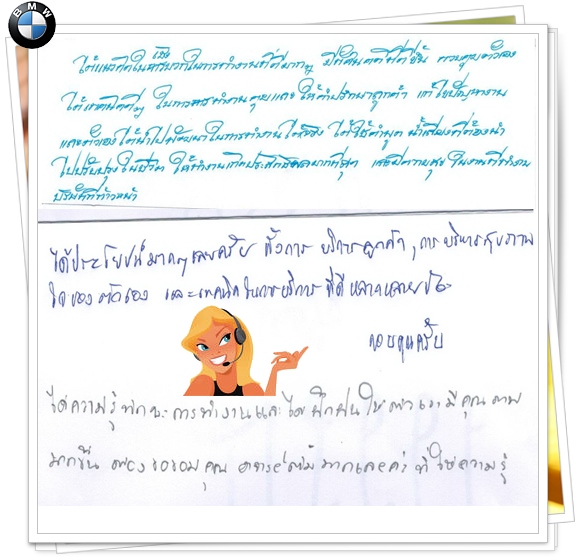 BMW
ได้แนวคิดในเชิงบวกในการทำงานที่ดีมากๆ มีทัศนคติที่ดีขึ้น ควบคุมตัวเอง
ได้เทคนิคดีๆ ในการทำงานคุยและให้คำปรึกษาลูกค้า แก้ไขปัญหางาน
และตัวเองได้นำไปพัฒนาในการทำงานได้จริง ได้ใช้คำพูด น้ำเสียงที่ต้องนำ
ไปปรับปรุงในชีวิต ให้ทำงานเกิดประสิทธิผลมากที่สุด และมีความสุขในงานที่ทำงาน
บริษัทที่ก้าวหน้า
ได้ประโยชน์มากๆเลยครับ ทั้งการ บริการลูกค้า, การบริหารสุขภาพ
ใจของตัวเอง และเทคนิคในการบริการที่ดี หลากหลาย
ขอบคุณครับ
ได้ความรู้ทักษะการทำงานและได้ฝึกฝนให้ตัวเรามีคุณภาพ
มากขึ้น ต้องขอขอบคุณ อาจารย์ มากเลยค่ะ ที่ให้ความรู้